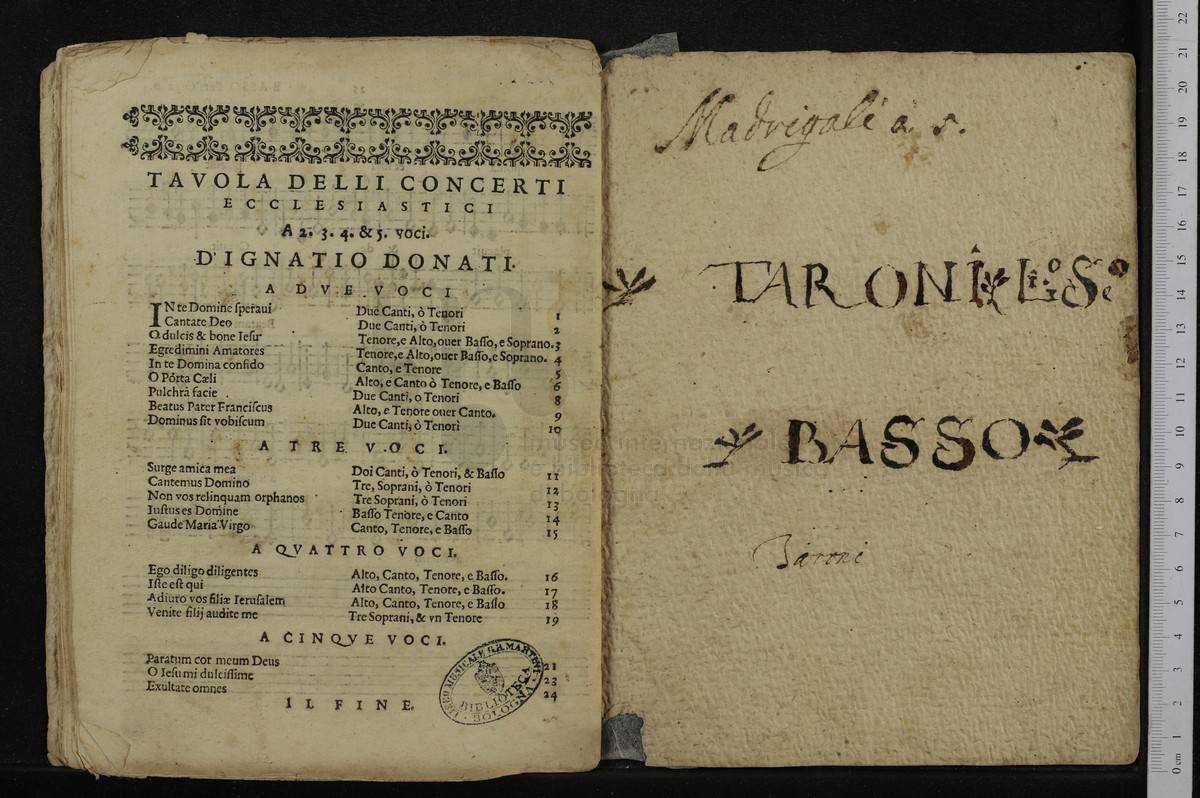 TAVOLA DELLI CONCERTI
ECCLESIASTICI
A 2. 3. 4. & 5. voci.
D'IGNATIO DONATI.
A DVE VOCI
IN te Domine ſperaui Due Canti, ò Tenori 1
Cantate Deo Due Canti, ò Tenori 2
O dulcis & bone Ieſu Tenore, e Alto, ouer Baſſo, e Soprano. 3
Egredimini Amatores Tenore, e Alto, ouer Baſſo, e Soprano. 4
In te Domina confido Canto, e Tenore 5
O Porta Cæli Alto, e Canto ò Tenore, e Baſſo 6
Pulchra facie Due Canti, o Tenori 8
Beatus Pater Franciſcus Alto, e Tenore ouer Canto. 9
Dominus ſit vobiſcum Due Canti, ò Tenori 10
A TRE VOCI.
Surge amica mea Doi Canti, ò Tenori, & Baſſo 11
Cantemus Domino Tre, Soprani, ò Tenori 12
Non vos relinquam orphanos Tre Soprani, ò Tenori 13
Iuſtus es Domine Baſſo Tenore, e Canto 14
Gaude Maria Virgo Canto, Tenore, e Baſſo 15
A QVATTRO VOCI.
Ego diligo diligentes Alto, Canto, Tenore, e Baſſo. 16
Iſte eſt qui Alto Canto, Tenore, e Baſſo. 17
Adiuro vos filiæ Ieruſalem Alto, Canto, Tenore, e Baſſo 18
Venite filij audite me Tre Soprani, & vn Tenore 19
A CINQVE VOCI.
Paratum cor meum Deus 21
O Ieſu mi dulciſſime 23
Exultate omnes 24
IL FINE.
LICEO MUSICALE G.B. MARTINI
BIBLIOTECA
BOLOGNA
Madrigali a. 5.
TARONI
BASSO
museo internaz
di bologna
0 cm 1 2 3 4 5 6 7 8 9 10 11 12 13 14 15 16 17 18 19 20 21 22